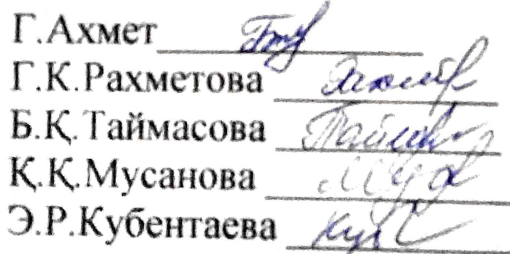 Г.Ахмет
Г.К.Рахметова
Б.Қ.Таймасова
Қ.Қ.Мусанова
Э.Р.Кубентаева